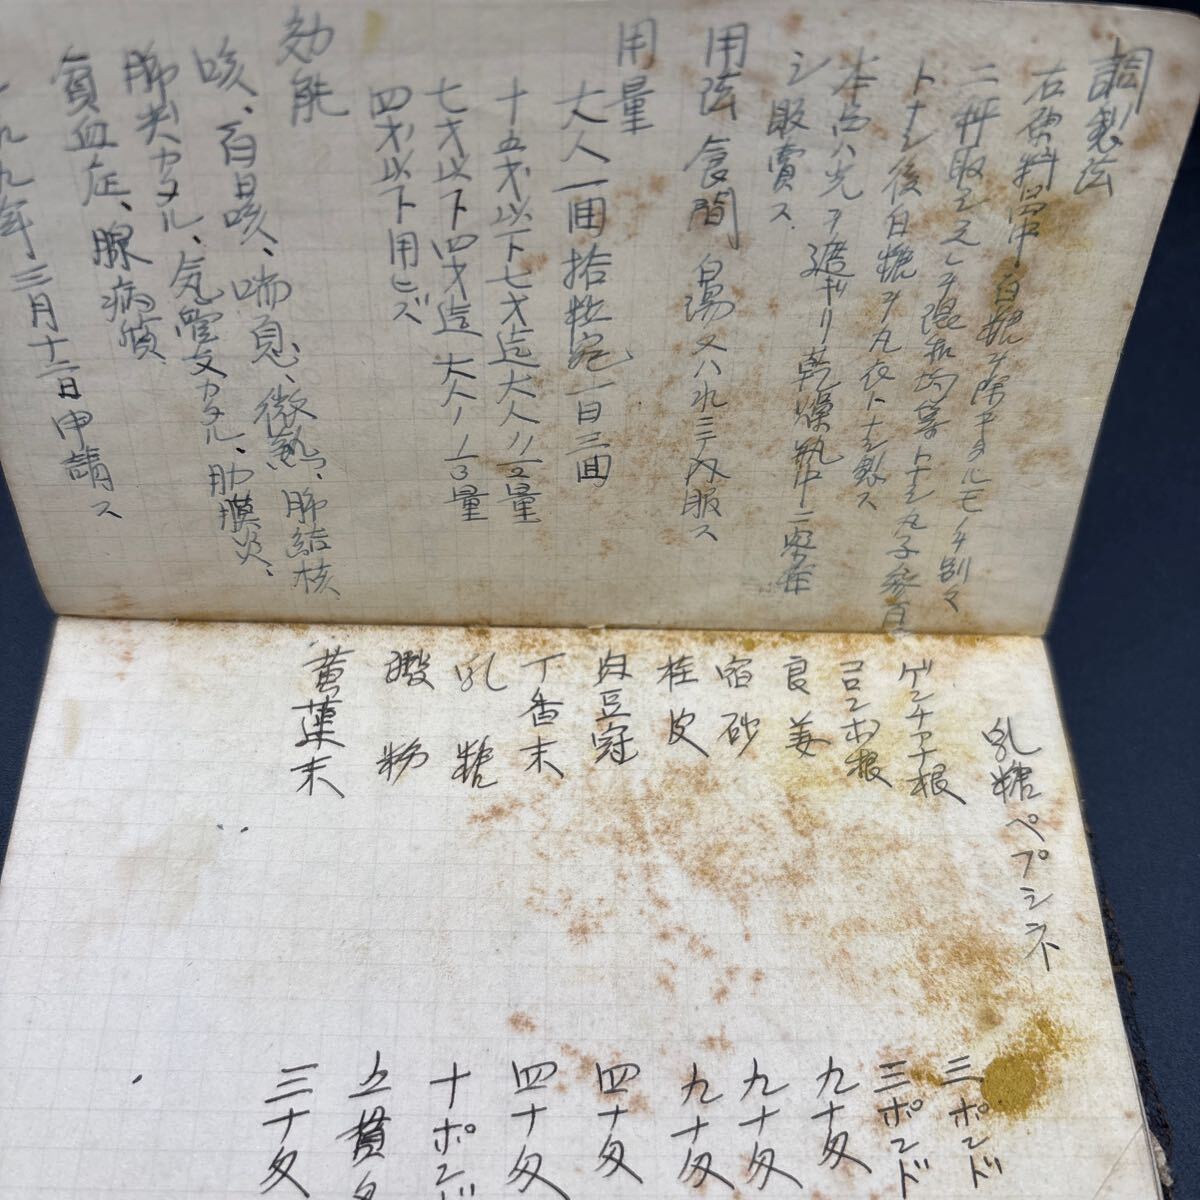 調製法
右原料中白糖ヲ除キタルモノヲ別々
ニ秤取シ之レヲ混和均等トナシ丸子參百
トナシ後白糖ヲ丸衣トナシ製ス
本品ハ光ヲ遮ギリ乾燥瓶中ニ密栓
シ販賣ス
用法 食間 白湯又ハ水ニテ内服ス
用量
大人一回拾粒宛一日三回
十五才以下七才迄大人ノ1/2量
七才以下四才迄大人ノ1/3量
四才以下用ヒズ
効能
咳、百日咳、喘息、微熱、肺結核
肺尖カタル、気管支カタル、肋膜炎、
貧血症、腺病質
一九九年三月十二日申請ス
乳糖ペプシネ 三ポンド
ゲンチアナ根 三ポンド
コロンボ根 九十匁
良姜 九十匁
宿砂 九十匁
桂皮 九十匁
肉豆冠 四十匁
丁香末 四十匁
乳糖 十ポンド
澱粉 五貫匁
黄蓮末 三十匁